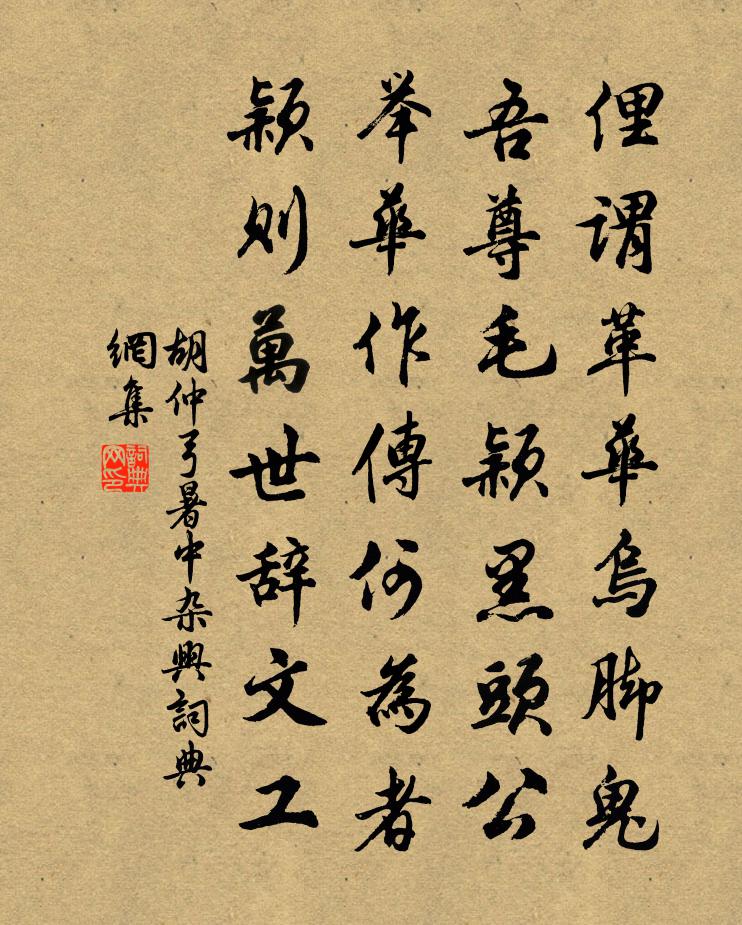 俚谓革華烏脚鬼
吾尊毛颖黑頭公
举華作傳何為者
颖则萬世辞文工
胡仲弓暑中杂興詞典
網集
詞典
网印